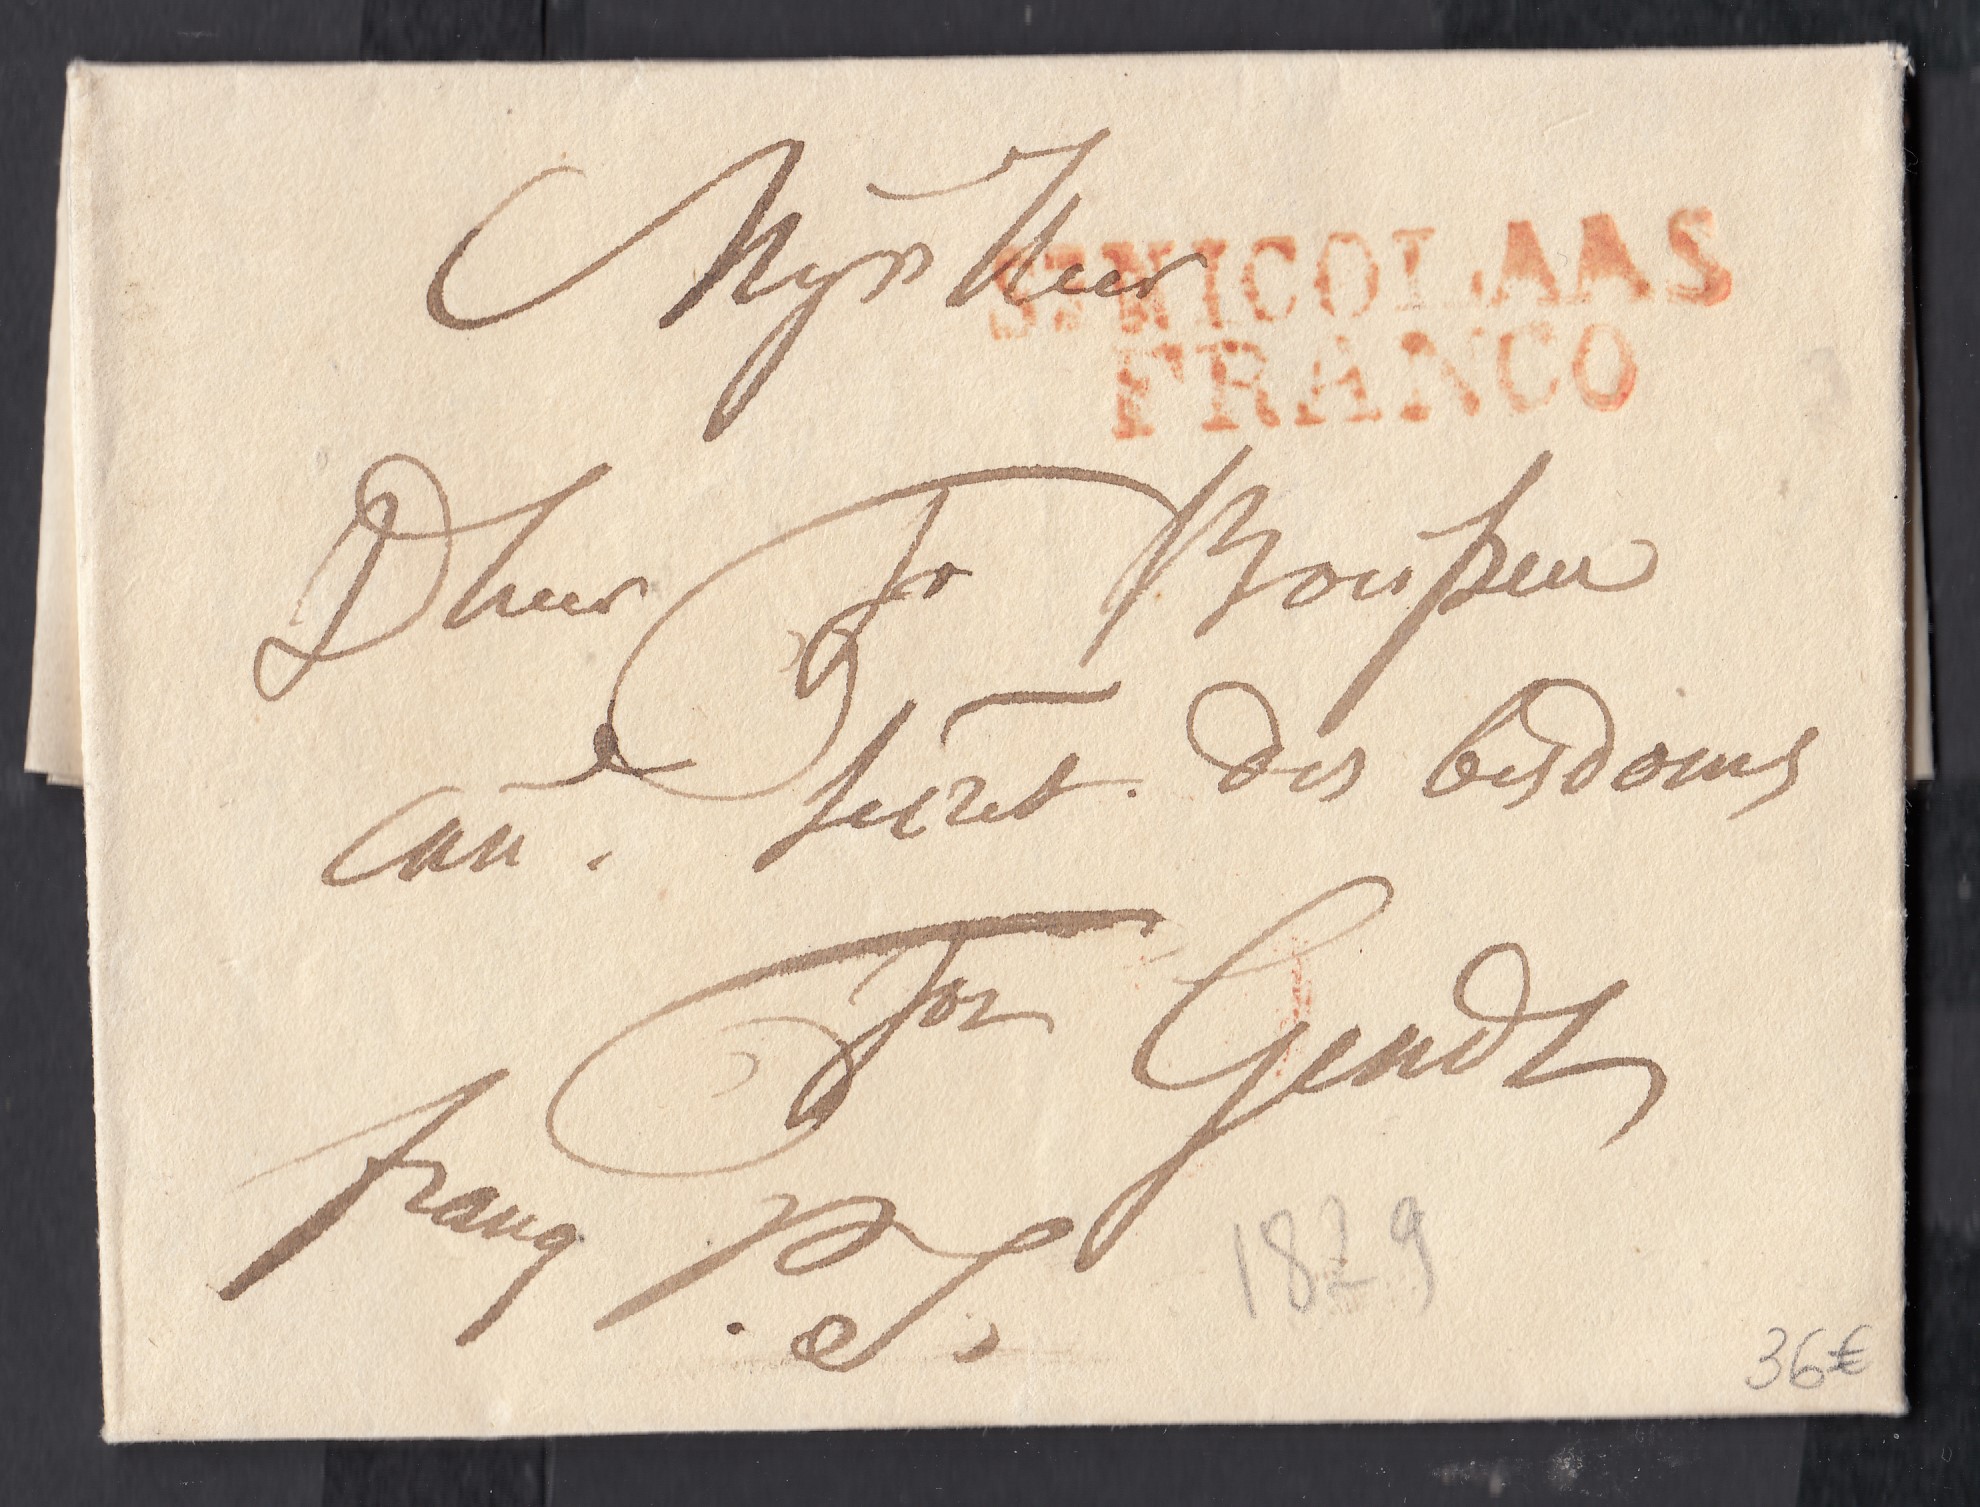 Mijn Heer
St NICOLAAS
FRANCO
Dheer Jo Boussen
can. secret. des bisdoms
Tot Gendt
franq
P. P.
1829
36€